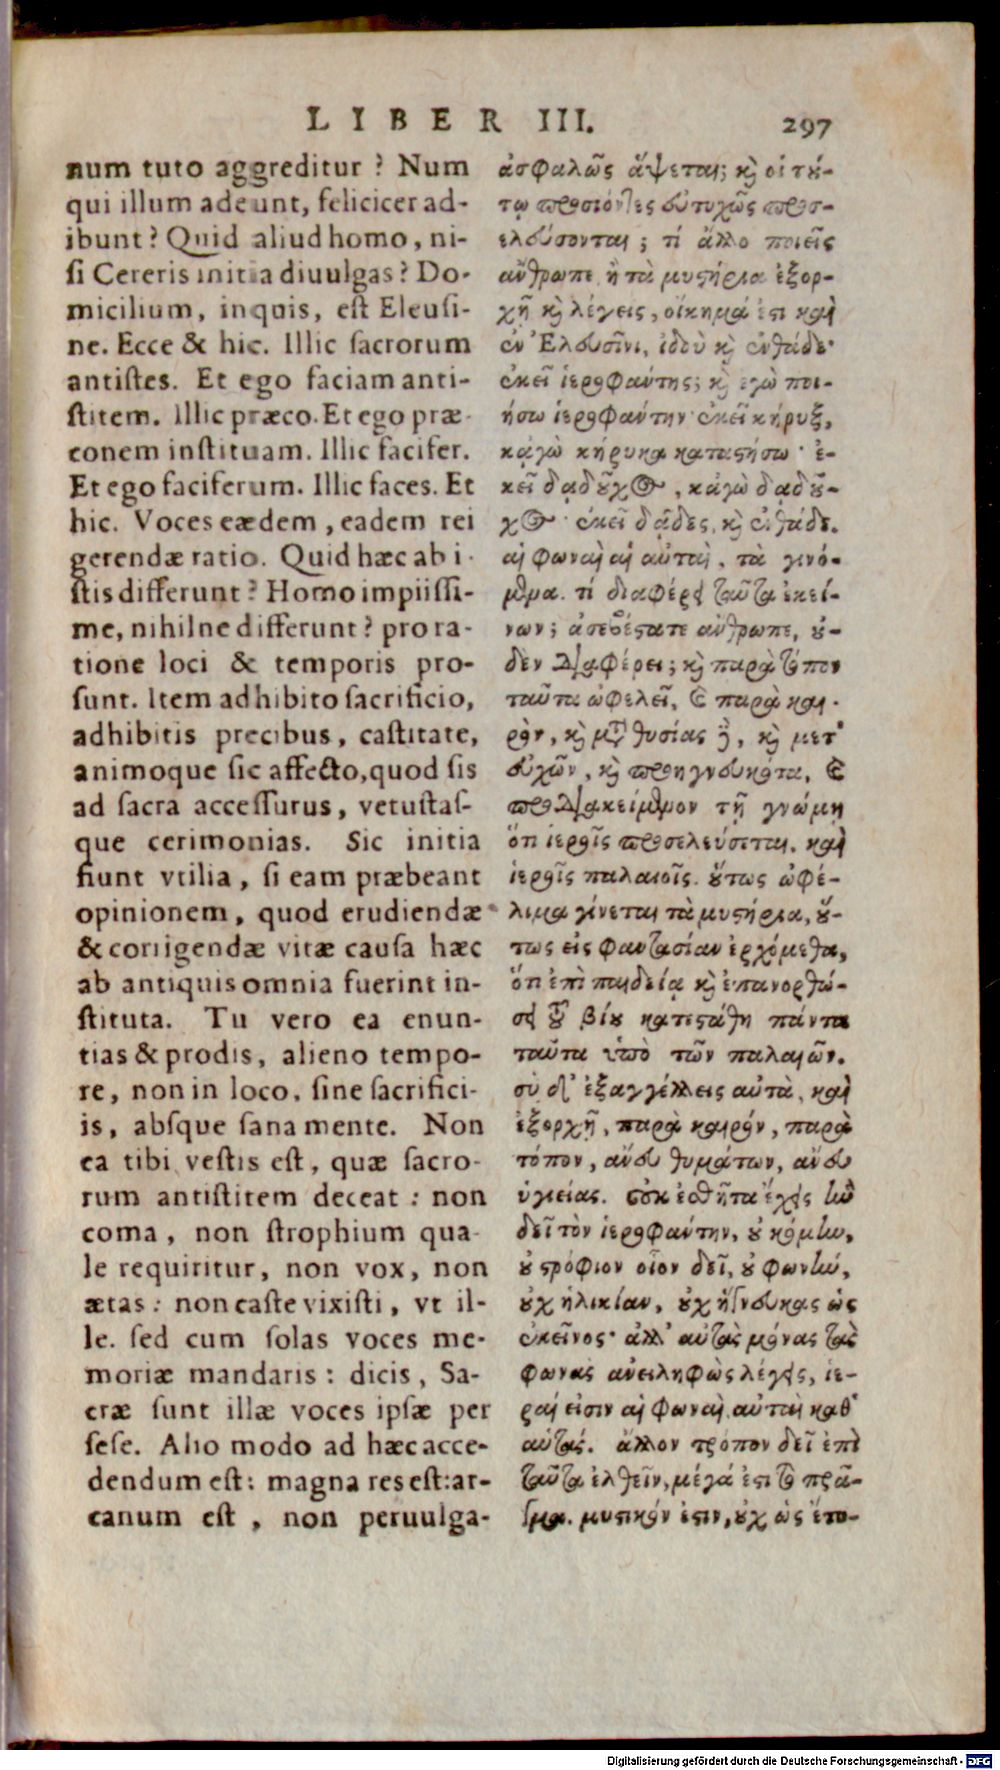 LIBER III. 297
num tuto aggreditur? Num
qui illum adeunt, felicicer ad-
ibunt? Quid aliud homo, ni-
si Cereris initia diuulgas? Do-
micilium, inquis, est Eleusi-
ne. Ecce & hic. Illic sacrorum
antistes. Et ego faciam anti-
stitem. Illic præco. Et ego præ-
conem instituam. Illic facifer.
Et ego faciferum. Illic faces. Et
hic. Voces eædem, eadem rei
gerendæ ratio. Quid hæc ab i-
stis differunt? Homo impiissi-
me, nihilne differunt? pro ra-
tione loci & temporis pro-
sunt. Item adhibito sacrificio,
adhibitis precibus, castitate,
animoque sic affecto, quod sis
ad sacra accessurus, vetustas-
que cerimonias. Sic initia
fiunt vtilia, si eam præbeant
opinionem, quod erudiendæ
& corrigendæ vitæ causa hæc
ab antiquis omnia fuerint in-
stituta. Tu vero ea enun-
tias & prodis, alieno tempo-
re, non in loco, sine sacrifici-
is, absque sana mente. Non
ea tibi vestis est, quæ sacro-
rum antistitem deceat: non
coma, non strophium qua-
le requiritur, non vox, non
ætas: non caste vixisti, vt il-
le. sed cum solas voces me-
moriæ mandaris: dicis, Sa-
cræ sunt illæ voces ipsæ per
sese. Alio modo ad hæc acce-
dendum est: magna res est: ar-
canum est, non peruulga-
ἀσφαλῶς ἅψεται; καὶ οἱ τού-
τῳ προσιόντες εὐτυχῶς προσ-
ελεύσονται; τί ἄλλο ποιεῖς
ἄνθρωπε ἢ τὰ μυστήρια ἐξορ-
χῇ καὶ λέγεις, οἴκημά ἐστι καὶ
ἐν Ἐλευσῖνι, ἰδοὺ καὶ ἐνθάδε·
ἐκεῖ ἱεροφάντης; καὶ ἐγὼ ποι-
ήσω ἱεροφάντην· ἐκεῖ κήρυξ,
κἀγὼ κήρυκα καταστήσω· ἐ-
κεῖ δᾳδοῦχος, κἀγὼ δᾳδοῦ-
χος· ἐκεῖ δᾷδες, καὶ ἐνθάδε.
αἱ φωναὶ αἱ αὐταὶ, τὰ γινό-
μενα. τί διαφέρει ταῦτα ἐκεί-
νων; ἀσεβέστατε ἄνθρωπε, οὐ-
δὲν διαφέρει; καὶ παρὰ τόπον
ταῦτα ὠφελεῖ, καὶ παρὰ και-
ρὸν, καὶ μετὰ θυσίας δὲ, καὶ μετ'
εὐχῶν, καὶ προηγνευκότα, καὶ
προδιακείμενον τῇ γνώμῃ
ὅτι ἱεροῖς προσελεύσεται, καὶ
ἱεροῖς παλαιοῖς. οὕτως ὠφέ-
λιμα γίνεται τὰ μυστήρια, οὕ-
τως εἰς φαντασίαν ἐρχόμεθα,
ὅτι ἐπὶ παιδείᾳ καὶ ἐπανορθώ-
σει τοῦ βίου κατεστάθη πάντα
ταῦτα ὑπὸ τῶν παλαιῶν.
σὺ δ' ἐξαγγέλλεις αὐτὰ, καὶ
ἐξορχῇ, παρὰ καιρόν, παρὰ
τόπον, ἄνευ θυμάτων, ἄνευ
ἁγνείας. οὐκ ἐσθῆτα ἔχεις ἣν
δεῖ τὸν ἱεροφάντην, οὐ κόμην,
οὐ στρόφιον οἷον δεῖ, οὐ φωνὴν,
οὐχ ἡλικίαν, οὐχ ἥγνευκας ὡς
ἐκεῖνος· ἀλλ' αὐτὰς μόνας τὰς
φωνὰς ἀνειληφὼς λέγεις, ἱε-
ραί εἰσιν αἱ φωναὶ αὐταὶ καθ'
αὑτάς. ἄλλον τρόπον δεῖ ἐπὶ
ταῦτα ἐλθεῖν, μέγα ἐστὶ τὸ πρᾶ-
γμα. μυστικόν ἐστιν, οὐχ ὡς ἔτυ-
Digitalisierung gefördert durch die Deutsche Forschungsgemeinschaft - DFG